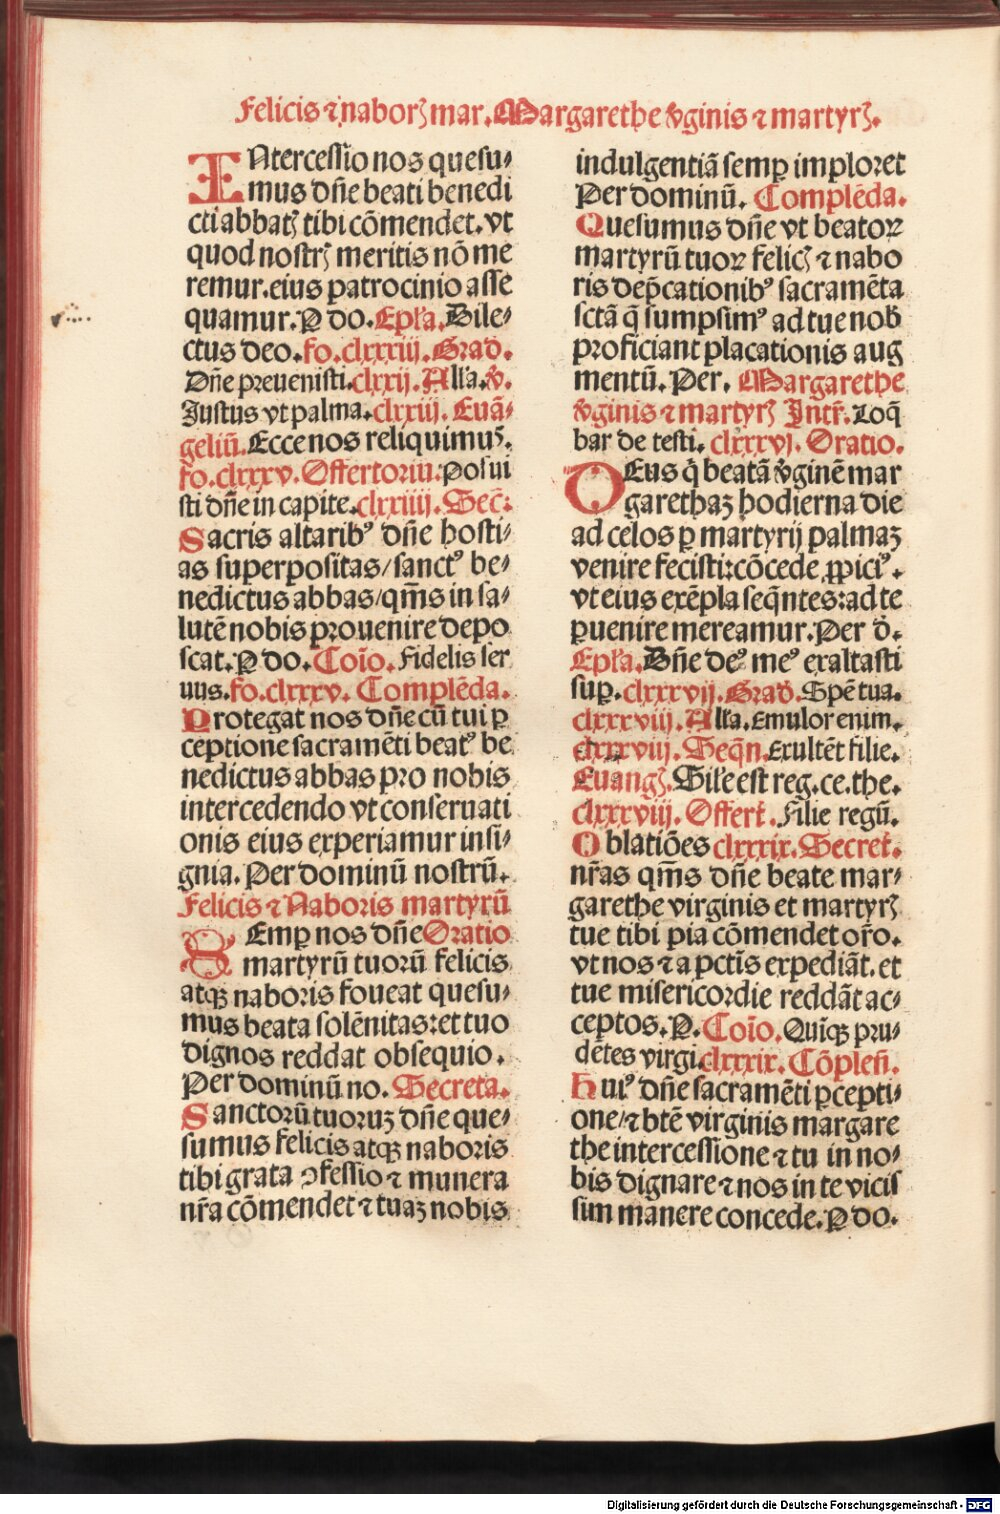 Felicis ⁊ naborꝫ mar. Margarethe v̄ginis ⁊ martyrꝫ.
INtercessio nos quesu⸗
mus dn̄e beati benedi
cti abbatꝫ tibi cōmendet. vt
quod nostrꝫ meritis nō me
remur. eius patrocinio asse
quamur. P do. Epl̄a. Dile⸗
ctus deo. fo. clxxxiij. Grad.
Dn̄e preuenisti. clxxij. All'a. v̄.
Justus vt palma. clxxiij. Euā⸗
geliū. Ecce nos reliquimus.
fo. clxxxv. Offertoriū. Posui
sti dn̄e in capite. clxxiiij. Secr̄:
Sacris altaribꝰ dn̄e hosti⸗
as superpositas/ sanctꝰ be⸗
nedictus abbas/ qm̄s in sa⸗
lutē nobis prouenire depo
scat. P do. Coīo. Fidelis ser
uus. fo. clxxxv. Complēda.
Protegat nos dn̄e cū tui ꝑ
ceptione sacramēti beatꝰ be
nedictus abbas pro nobis
intercedendo vt conseruati
onis eius experiamur insi⸗
gnia. Per dominū nostrū.
Felicis ⁊ Naboris martyrū
SEmꝑ nos dn̄e Oratio
martyrū tuorū felicis
atqꝫ naboris foueat quesu⸗
mus beata solēnitas: et tuo
dignos reddat obsequio.
Per dominū no. Secreta.
Sanctorū tuoruꝫ dn̄e que⸗
sumus felicis atqꝫ naboris
tibi grata ꝯfessio ⁊ munera
nr̄a cōmendet ⁊ tuaꝫ nobis
indulgentiā semꝑ imploret
Per dominū. Complēda.
Quesumus dn̄e vt beatoꝝ
martyrū tuoꝝ felicꝫ ⁊ nabo
ris dep̄cationibꝰ sacramēta
sctā q̄ sumpsimꝰ ad tue nob̄
proficiant placationis aug
mentū. Per. Margarethe
v̄ginis ⁊ martyrꝫ Intr̄. Loq̄
bar de testi. clxxxvj. Oratio.
DEus q̇ beatā v̄ginē mar
garethaꝫ hodierna die
ad celos ꝑ martyrij palmaꝫ
venire fecisti: cōcede ꝓpiciꝰ.
vt eius exēpla seq̄ntes: ad te
ꝑuenire mereamur. Per d̄.
Epl̄a. Dn̄e deꝰ meꝰ exaltasti
suꝑ. clxxxvij. Grad̄. Spē tua.
clxxxviij. All'a. Emulor enim.
clxxxviij. Seqn̄. Exultēt filie.
Euangꝫ. Sil'e est reg. ce. the.
clxxxviij. Offert̄. Filie regū.
Oblatiōes clxxxix. Secret̄.
nr̄as qm̄s dn̄e beate mar⸗
garethe virginis et martyrꝫ
tue tibi pia cōmendet or̄o.
vt nos ⁊ a pctīs expediāt. et
tue misericordie reddāt ac⸗
ceptos. P. Coīo. Quīqꝫ pru⸗
dētes virgi. clxxxix. Cōplen̄.
Huiꝰ dn̄e sacramēti ꝑcepti⸗
one/ ⁊ btē virginis margare
the intercessione ⁊ tu in no⸗
bis dignare ⁊ nos in te vicis
sim manere concede. P do.
Digitalisierung gefördert durch die Deutsche Forschungsgemeinschaft - DFG